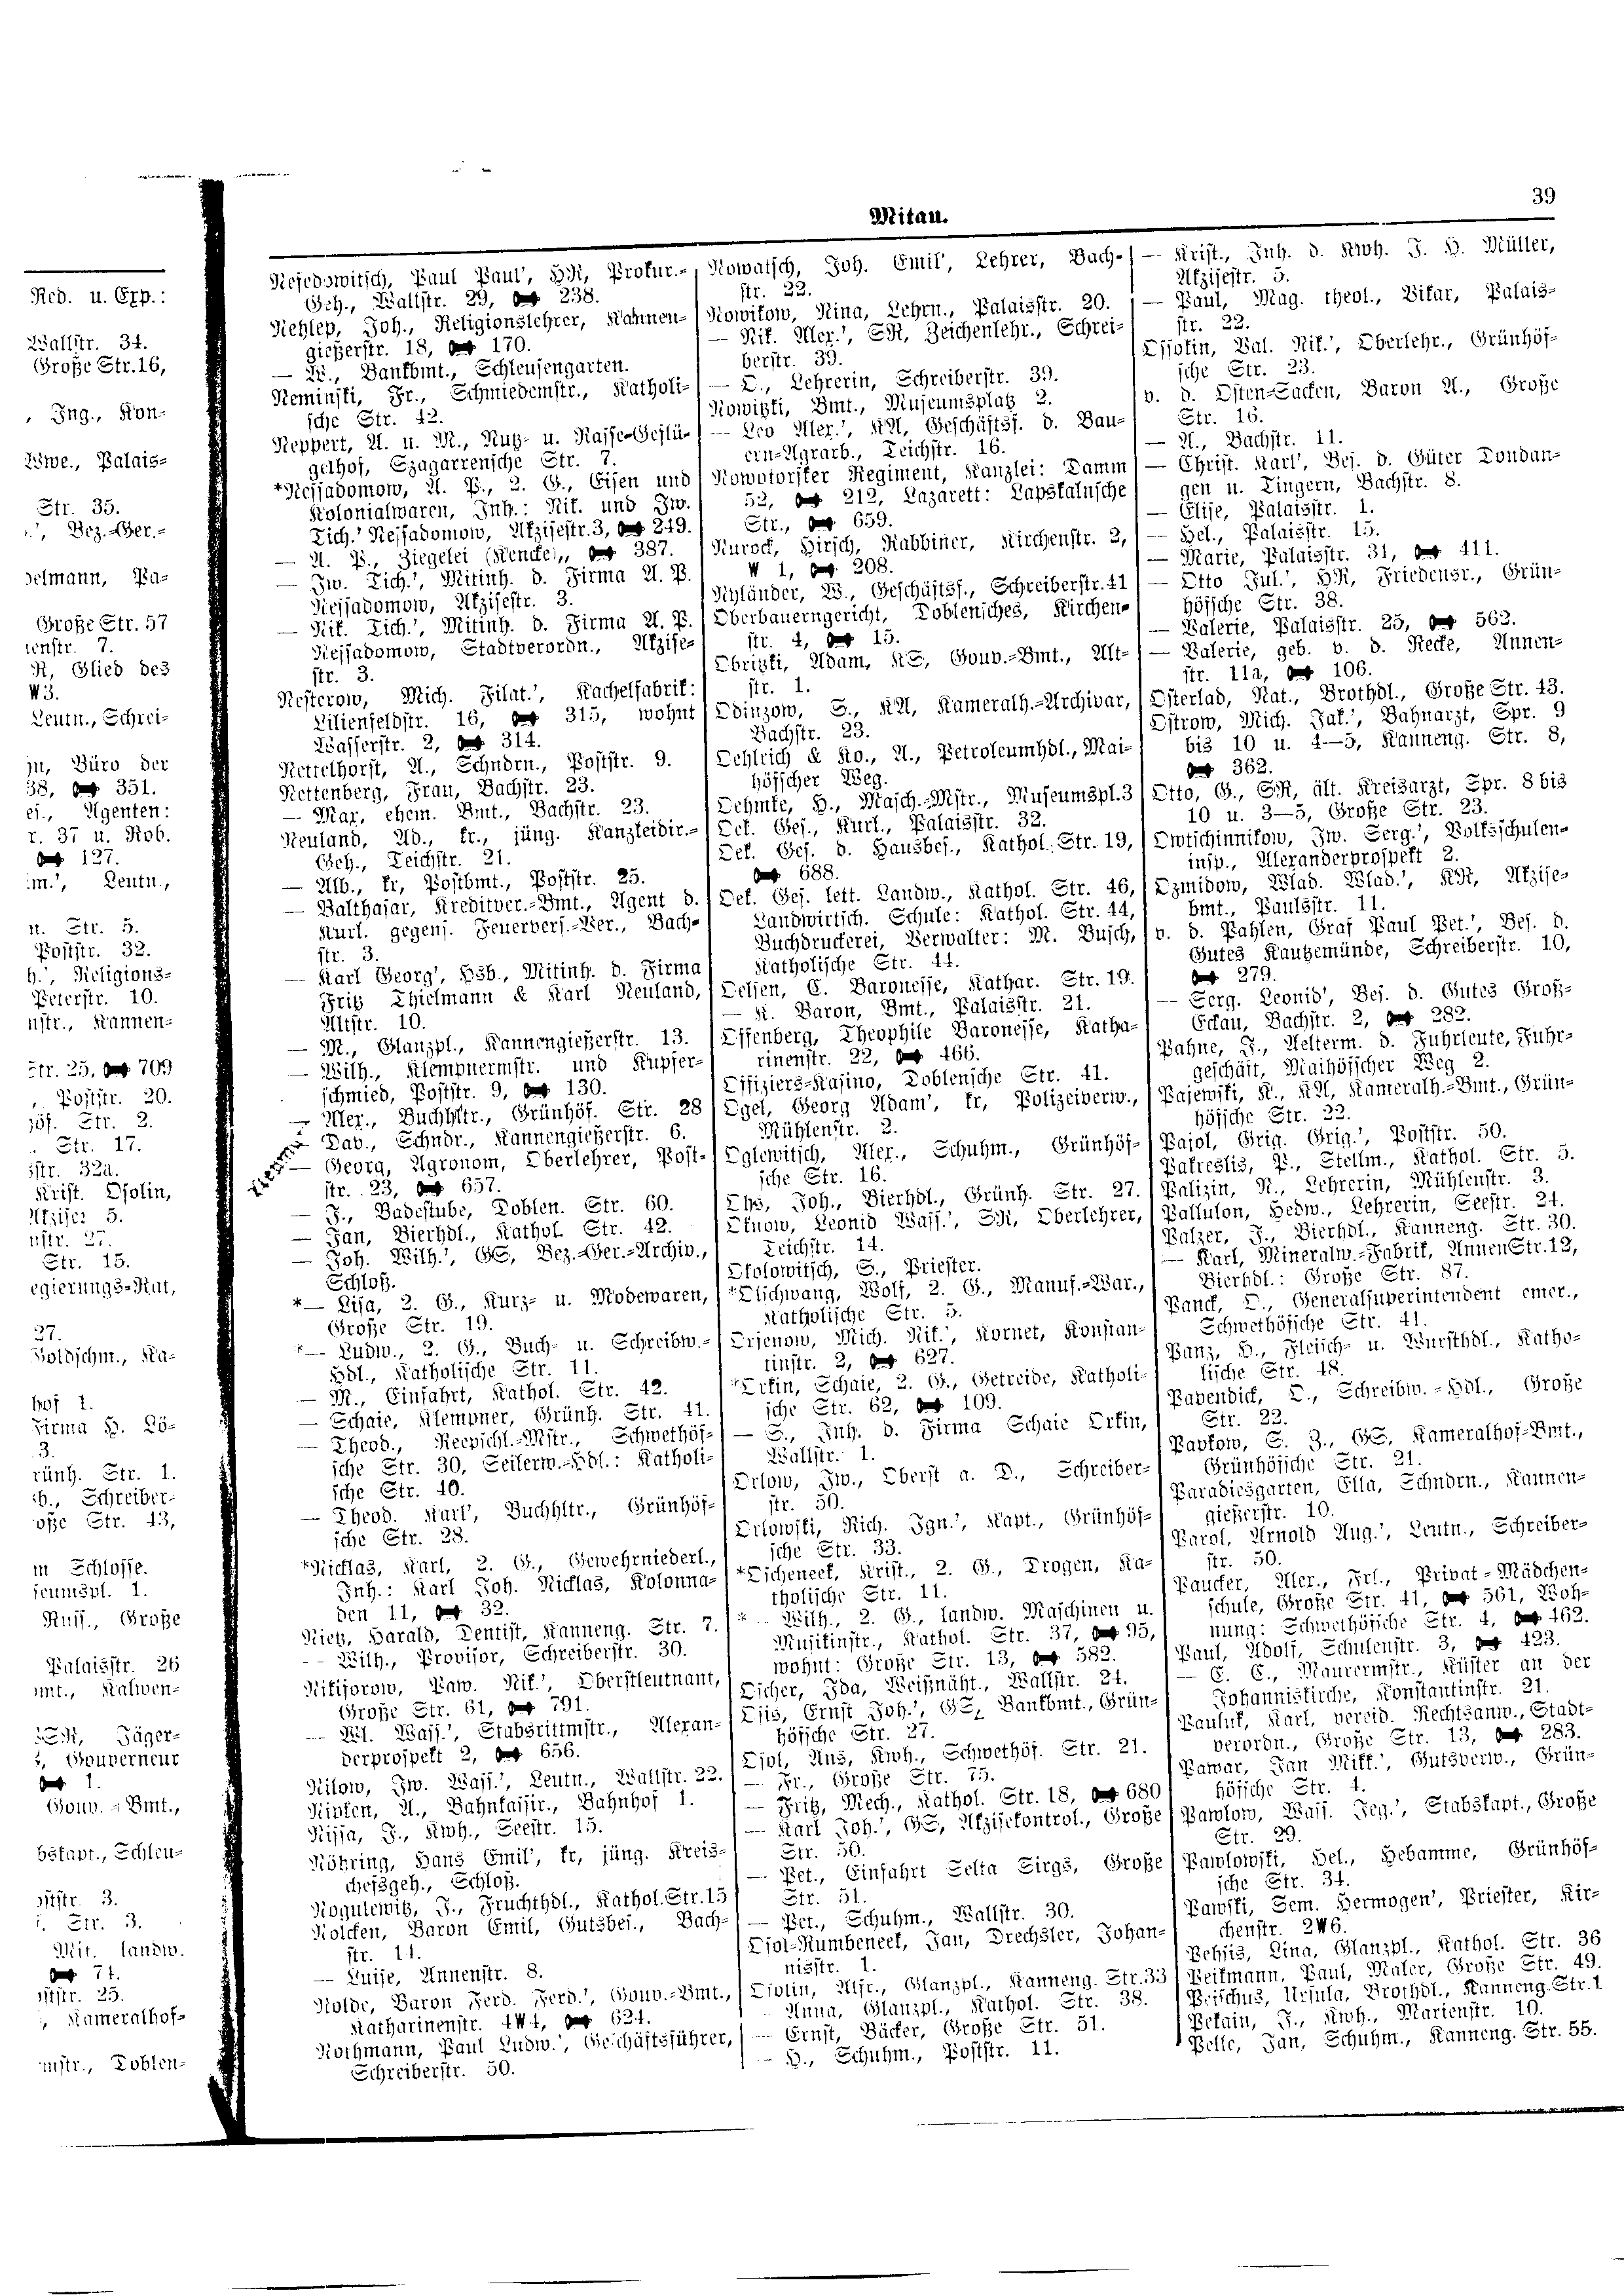 39
Mitau.
Red. u. Exp.:
Wallstr. 34.
Große Str. 16,
, Ing., Kon-
Wwe., Palais-
Str. 35.
Bez.-Ger.-
Große Str. 57
R, Glied des
W 3.
Leutn., Schrei-
Büro der
38, 351.
Agenten:
r. 37 u. Rob.
127.
Leutn.,
Str. 5.
Poststr. 32.
Religions-
Peterstr. 10.
Kannen-
Str. 25, 709
Poststr. 20.
Str. 2.
Str. 17.
32a.
Krist. Osolin,
5.
27.
Str. 15.
egierungs-Rat,
27.
oldschm., Ka-
hof 1.
Firma H. Lö-
3.
rünh. Str. 1.
Schreiber-
oße Str. 43,
m Schlosse.
1.
Große
Palaisstr. 26
Jäger-
Gouverneur
1.
Gouv.-Bmt.,
Schleu-
3.
Str. 3.
Mit. landw.
71.
25.
, Kameralhof-
mstr., Doblen-
Nejedowitsch, Paul Paul', HR, Prokur.-
Geh., Wallstr. 29, 238.
Nehlep, Joh., Religionslehrer, Kannen-
gießerstr. 18, 170.
— W., Bankbmt., Schleusengarten.
Neminski, Fr., Schmiedemstr., Katholi-
sche Str. 42.
Neppert, A. u. M., Nutz- u. Rasse-Geflü-
gelhof, Szagarrensche Str. 7.
*Nessadomow, A. P., 2. G., Eisen und
Kolonialwaren, Inh.: Nik. und Iw.
Tich.' Nessadomow, Akzisestr. 3, 249.
— A. P., Ziegelei (Kencke), 387.
— Iw. Tich.', Mitinh. d. Firma A. P.
Nessadomow, Akzisestr. 3.
— Nik. Tich.', Mitinh. d. Firma A. P.
Nessadomow, Stadtverordn., Akzise-
str. 3.
Nesterow, Mich. Filat.', Kachelfabrik:
Lilienfeldstr. 16, 315, wohnt
Wasserstr. 2, 314.
Nettelhorst, A., Schndrn., Poststr. 9.
Nettenberg, Frau, Bachstr. 23.
— Max, ehem. Bmt., Bachstr. 23.
Neuland, Ad., kr., jüng. Kanzleidir.-
Geh., Teichstr. 21.
— Alb., kr, Postbmt., Poststr. 25.
— Balthasar, Kreditver.-Bmt., Agent d.
Kurl. gegens. Feuervers.-Ver., Bach-
str. 3.
— Karl Georg', Hsb., Mitinh. d. Firma
Fritz Thielmann & Karl Neuland,
Altstr. 10.
— M., Glanzpl., Kannengießerstr. 13.
— Wilh., Klempnermstr. und Kupfer-
schmied, Poststr. 9, 130.
— Alex., Buchhltr., Grünhöf. Str. 28
— Dav., Schndr., Kannengießerstr. 6.
— Georg, Agronom, Oberlehrer, Post-
str. 23, 657.
— J., Badestube, Doblen. Str. 60.
— Jan, Bierhdl., Kathol. Str. 42.
— Joh. Wilh.', GS, Bez.-Ger.-Archiv.,
Schloß.
*— Lisa, 2. G., Kurz- u. Modewaren,
Große Str. 19.
*— Ludw., 2. G., Buch- u. Schreibw.-
Hdl., Katholische Str. 11.
— M., Einfahrt, Kathol. Str. 42.
— Schaie, Klempner, Grünh. Str. 41.
— Theod., Reepschl.-Mstr., Schwethöf-
sche Str. 30, Seilerw.-Hdl.: Katholi-
sche Str. 40.
— Theod. Karl', Buchhltr., Grünhöf-
sche Str. 28.
*Nicklas, Karl, 2. G., Gewehrniederl.,
Inh.: Karl Joh. Nicklas, Kolonna-
den 11, 32.
Nietz, Harald, Dentist, Kanneng. Str. 7.
— Wilh., Provisor, Schreiberstr. 30.
Nikiforow, Paw. Nik.', Oberstleutnant,
Große Str. 61, 791.
— Wl. Wass.', Stabsrittmstr., Alexan-
derprospekt 2, 656.
Nilow, Iw. Wass.', Leutn., Wallstr. 22.
Nipken, A., Bahnkassir., Bahnhof 1.
Nissa, J., Kwh., Seestr. 15.
Nöhring, Hans Emil', kr, jüng. Kreis-
chefsgeh., Schloß.
Nogulewitz, J., Fruchthdl., Kathol. Str. 15
Nolcken, Baron Emil, Gutsbes., Bach-
str. 14.
— Luise, Annenstr. 8.
Nolde, Baron Ferd. Ferd.', Gouv.-Bmt.,
Katharinenstr. 4 W 4, 624.
Nothmann, Paul Ludw.', Geschäftsführer,
Schreiberstr. 50.
Nowatsch, Joh. Emil', Lehrer, Bach-
str. 22.
Nowikow, Nina, Lehrn., Palaisstr. 20.
— Nik. Alex.', SR, Zeichenlehr., Schrei-
berstr. 39.
— O., Lehrerin, Schreiberstr. 39.
Nowitzki, Bmt., Museumsplatz 2.
— Leo Alex.', KA, Geschäftsf. d. Bau-
ern-Agrarb., Teichstr. 16.
Nowotorsker Regiment, Kanzlei: Damm
52, 212, Lazarett: Lapskalnsche
Str., 659.
Nurock, Hirsch, Rabbiner, Kirchenstr. 2,
W 1, 208.
Nyländer, W., Geschäftsf., Schreiberstr. 41
Oberbauerngericht, Doblensches, Kirchen-
str. 4, 15.
Obritzki, Adam, KS, Gouv.-Bmt., Alt-
str. 1.
Odinzow, S., KA, Kameralh.-Archivar,
Bachstr. 23.
Oehlrich & Ko., A., Petroleumhdl., Mai-
höfscher Weg.
Oehmke, H., Masch.-Mstr., Museumspl. 3
Oek. Ges., Kurl., Palaisstr. 32.
Oek. Ges. d. Hausbes., Kathol. Str. 19,
688.
Oek. Ges. lett. Landw., Kathol. Str. 46,
Landwirtsch. Schule: Kathol. Str. 44,
Buchdruckerei, Verwalter: M. Busch,
Katholische Str. 44.
Oelsen, C. Baronesse, Kathar. Str. 19.
— K. Baron, Bmt., Palaisstr. 21.
Offenberg, Theophile Baronesse, Katha-
rinenstr. 22, 466.
Offiziers-Kasino, Doblensche Str. 41.
Ogel, Georg Adam', kr, Polizeiverw.,
Mühlenstr. 2.
Oglewitsch, Alex., Schuhm., Grünhöf-
sche Str. 16.
Ohs, Joh., Bierhdl., Grünh. Str. 27.
Oknow, Leonid Wass.', SR, Oberlehrer,
Teichstr. 14.
Okolowitsch, S., Priester.
*Olschwang, Wolf, 2. G., Manuf.-War.,
Katholische Str. 5.
Orjenow, Mich. Nik.', Kornet, Konstan-
tinstr. 2, 627.
*Orkin, Schaie, 2. G., Getreide, Katholi-
sche Str. 62, 109.
— S., Inh. d. Firma Schaie Orkin,
Wallstr. 1.
Orlow, Iw., Oberst a. D., Schreiber-
str. 50.
Orlowski, Rich. Ign.', Kapt., Grünhöf-
sche Str. 33.
*Oscheneek, Krist., 2. G., Drogen, Ka-
tholische Str. 11.
*— Wilh., 2. G., landw. Maschinen u.
Musikinstr., Kathol. Str. 37, 95,
wohnt: Große Str. 13, 582.
Oscher, Ida, Weißnäht., Wallstr. 24.
Osis, Ernst Joh.', GS, Bankbmt., Grün-
höfsche Str. 27.
Osol, Ans, Kwh., Schwethöf. Str. 21.
— Fr., Große Str. 75.
— Fritz, Mech., Kathol. Str. 18, 680
— Karl Joh.', GS, Akzisekontrol., Große
Str. 50.
— Pet., Einfahrt Selta Sirgs, Große
Str. 51.
— Pet., Schuhm., Wallstr. 30.
Osol-Rumbeneek, Jan, Drechsler, Johan-
nisstr. 1.
Osolin, Alfr., Glanzpl., Kanneng. Str. 33
Anna, Glanzpl., Kathol. Str. 38.
— Ernst, Bäcker, Große Str. 51.
— H., Schuhm., Poststr. 11.
— Krist., Inh. d. Kwh. J. H. Müller,
Akzisestr. 5.
— Paul, Mag. theol., Vikar, Palais-
str. 22.
Ossokin, Val. Nik.', Oberlehr., Grünhöf-
sche Str. 23.
v. d. Osten-Sacken, Baron A., Große
Str. 16.
— A., Bachstr. 11.
— Christ. Karl', Bes. d. Güter Dondan-
gen u. Tingern, Bachstr. 8.
— Elise, Palaisstr. 1.
— Hel., Palaisstr. 15.
— Marie, Palaisstr. 31, 411.
— Otto Jul.', HR, Friedensr., Grün-
höfsche Str. 38.
— Valerie, Palaisstr. 25, 562.
— Valerie, geb. v. d. Recke, Annen-
str. 11a, 106.
Osterlad, Nat., Brothdl., Große Str. 43.
Ostrow, Mich. Jak.', Bahnarzt, Spr. 9
bis 10 u. 4—5, Kanneng. Str. 8,
362.
Otto, G., SR, ält. Kreisarzt, Spr. 8 bis
10 u. 3—5, Große Str. 23.
Owtschinnikow, Iw. Serg.', Volksschulen-
insp., Alexanderprospekt 2.
Ozmidow, Wlad. Wlad.', KR, Akzise-
bmt., Paulsstr. 11.
v. d. Pahlen, Graf Paul Pet.', Bes. d.
Gutes Kautzemünde, Schreiberstr. 10,
279.
— Serg. Leonid', Bes. d. Gutes Groß-
Eckau, Bachstr. 2, 282.
Pahne, J., Aelterm. d. Fuhrleute, Fuhr-
geschäft, Maihöfscher Weg 2.
Pajewski, K., KA, Kameralh.-Bmt., Grün-
höfsche Str. 22.
Pajol, Grig. Grig.', Poststr. 50.
Pakreslis, P., Stellm., Kathol. Str. 5.
Palizin, N., Lehrerin, Mühlenstr. 3.
Pallulon, Hedw., Lehrerin, Seestr. 24.
Palzer, J., Bierhdl., Kanneng. Str. 30.
— Karl, Mineralw.-Fabrik, Annen Str. 12,
Bierhdl.: Große Str. 87.
Panck, O., Generalsuperintendent emer.,
Schwethöfsche Str. 41.
Panz, H., Fleisch- u. Wursthdl., Katho-
lische Str. 48.
Papendick, O., Schreibw.-Hdl., Große
Str. 22.
Papkow, S. Z., GS, Kameralhof-Bmt.,
Grünhöfsche Str. 21.
Paradiesgarten, Ella, Schndrn., Kannen-
gießerstr. 10.
Parol, Arnold Aug.', Leutn., Schreiber-
str. 50.
Paucker, Alex., Frl., Privat-Mädchen-
schule, Große Str. 41, 561, Woh-
nung: Schwethöfsche Str. 4, 462.
Paul, Adolf, Schulenstr. 3, 423.
— C. E., Maurermstr., Küster an der
Johanniskirche, Konstantinstr. 21.
Pauluk, Karl, vereid. Rechtsanw., Stadt-
verordn., Große Str. 13, 283.
Pawar, Jan Mikk.', Gutsverw., Grün-
höfsche Str. 4.
Pawlow, Wass. Jeg.', Stabskapt., Große
Str. 29.
Pawlowski, Hel., Hebamme, Grünhöf-
sche Str. 34.
Pawski, Sem. Hermogen', Priester, Kir-
chenstr. 2 W 6.
Pehsis, Lina, Glanzpl., Kathol. Str. 36
Peikmann, Paul, Maler, Große Str. 49.
Peischus, Ursula, Brothdl., Kanneng. Str. 1
Pekain, J., Kwh., Marienstr. 10.
Pelle, Jan, Schuhm., Kanneng. Str. 55.